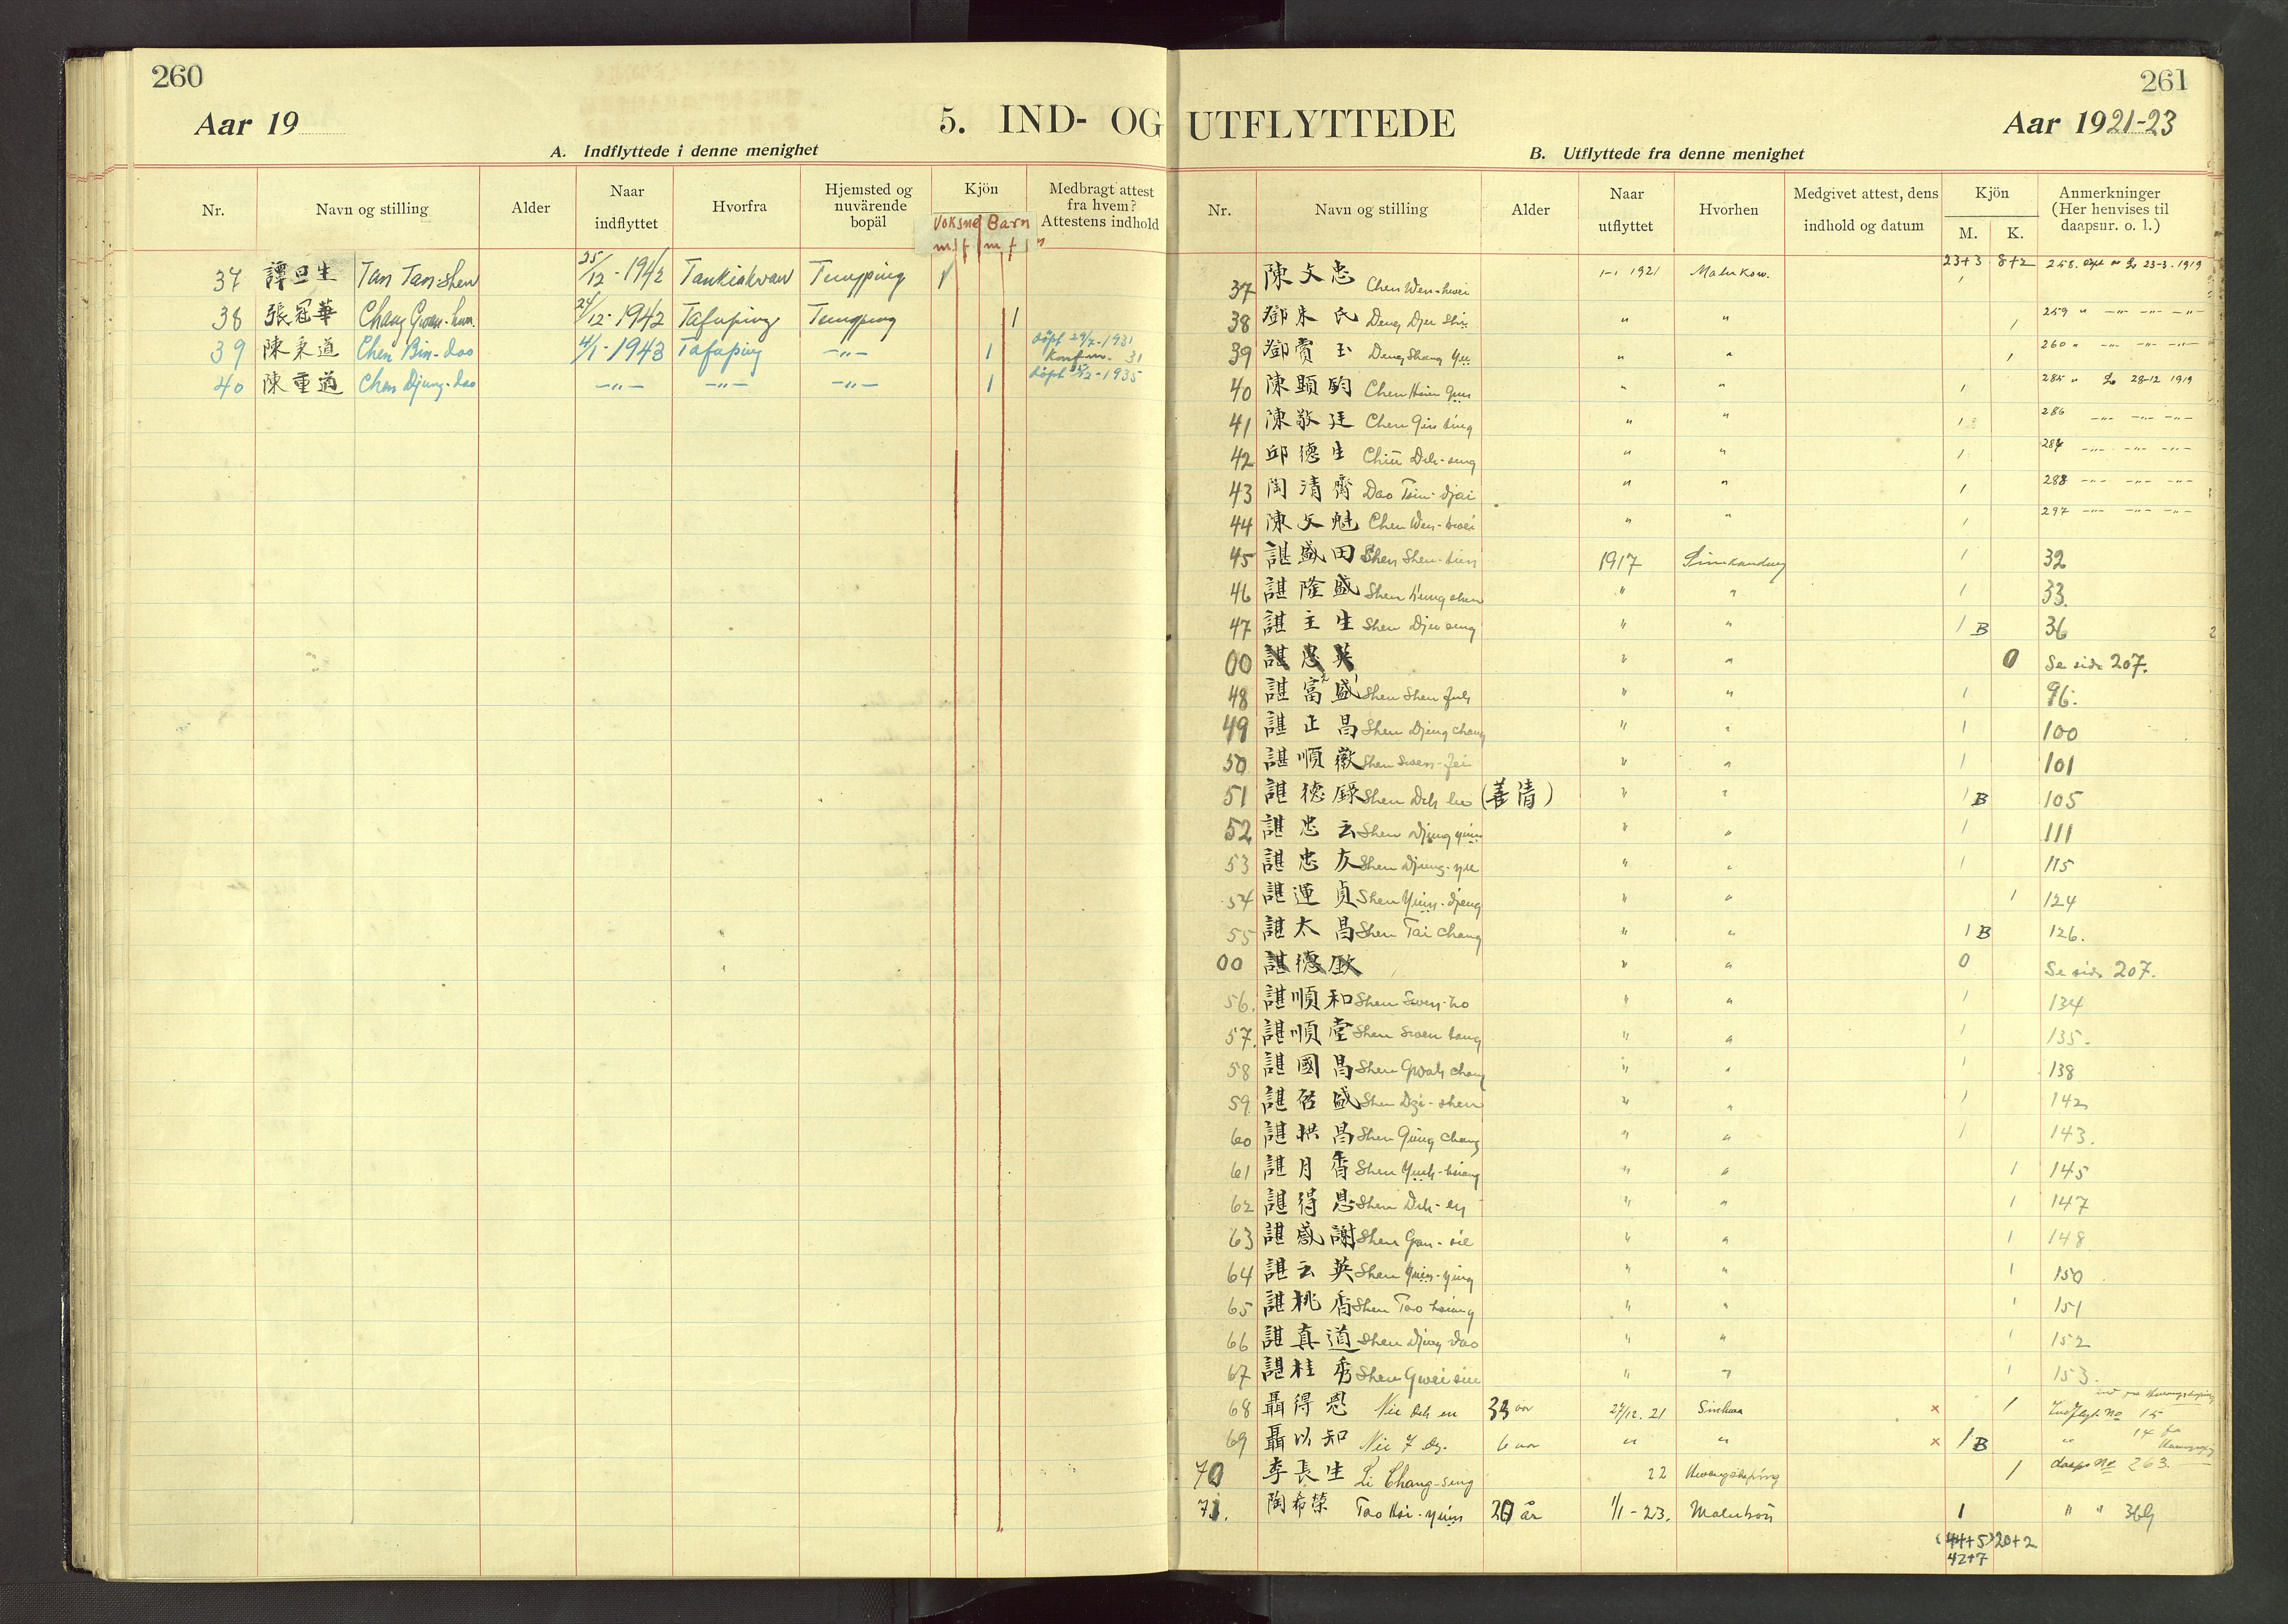 260
Aar 19
5. IND- OG
A. Indflyttede i denne menighet
Nr. Navn og stilling Alder Naar indflyttet Hvorfra Hjemsted og nuværende bopäl Kjön Medbragt attest fra hvem? Attestens indhold
Voksne Barn
m. f m f
37 譚旦生 Tan Tan-shen 25/12-1942 Tankiakwan Tungping 1
38 張冠華 Chang Gwan-hwa 24/12-1942 Tafuping Tungping 1
39 陳秉道 Chen Bin-dao 4/1-1943 Tafuping -"- 1 döpt 29/2-1931 Konfirm. 31
40 陳重道 Chen Djung-dao -"- -"- -"- 1 döpt 25/12-1935
261
UTFLYTTEDE
Aar 1921-23
B. Utflyttede fra denne menighet
Nr. Navn og stilling Alder Naar utflyttet Hvorhen Medgivet attest, dens indhold og datum Kjön M. K. Anmerkninger (Her henvises til daapsnr. o. l.)
23+3 8+2
37 陳文忠 Chen Wen-hwei 1-1 1921 Malukow. 1 258. 23-3-1919
38 鄧朱氏 Deng Dju Shi " " 1 259 " -"- -"- -"-
39 鄧賞玉 Deng Shang Yu " " 1 260 " -"- -"- -"-
40 陳顯鈞 Chen Hsien Gün " " 1 285 " 28-12 1919
41 陳敬廷 Chen Gin ting " " 1 286 -"- -"- -"-
42 邱德生 Chiu Deh-seng " " 1 287 -"- -"- -"-
43 陶清齋 Dao Tsin-djai " " 1 288 -"- -"- -"-
44 陳文魁 Chen Wen-kwei " " 1 297 -"- -"- -"-
45 諶盛田 Shen Shen-tien 1917 Sinkandung 1 32
46 諶隆盛 Shen Lung shen " " 1 33.
47 諶主生 Shen Dju seng " " 1 B 36
00 諶忠英 " " 0 Se side 207.
48 諶富盛 Shen Shen fuh " " 1 96.
49 諶正昌 Shen Djeng chang " " 1 100
50 諶順徽 Shen Swen-fei " " 1 101
51 諶德錄 Shen Deh lu (善清) " " 1 B 105
52 諶忠云 Shen Djung yün " " 1 111
53 諶忠友 Shen Djung-yu " " 1 115
54 諶運貞 Shen Yün-djeng " " 1 124
55 諶太昌 Shen Tai chang " " 1 B 126.
00 諶德欧 " " 0 Se side 207.
56. 諶順和 Shen Swen-ho " " 1 134
57. 諶順堂 Shen Swen tang " " 1 135.
58 諶國昌 Shen Gwoh chang " " 1 138
59 諶啓盛 Shen Dzi-shen " " 1 142
60 諶拱昌 Shen Gung chang " " 1 143.
61 諶月香 Shen Yueh-hsiang " " 1 145
62 諶得恩 Shen Deh-en " " 1 147
63 諶感謝 Shen Gan-sie " " 1 148
64 諶云英 Shen Yün-ying " " 1 150
65 諶桃香 Shen Tao hsiang " " 1 151
66 諶真道 Shen Djeng dao " " 1 152
67 諶桂秀 Shen Gwei siu " " 1 153.
68 聶得恩 Nie Deh en 33 aar 27/12. 21 Sinhua × 1 Indflyt No 15
69 聶以知 Nie I dz. 6 aar " " × 1 B " 14 fra
70 李長生 Li Chang-seng 22 Hwangshaping 1 daaps No 263.
71. 陶希榮 Tao Hsi-yuin 20 år 1/1-23. Malukou 1 " " 369
(44+5) 20+2
42+7